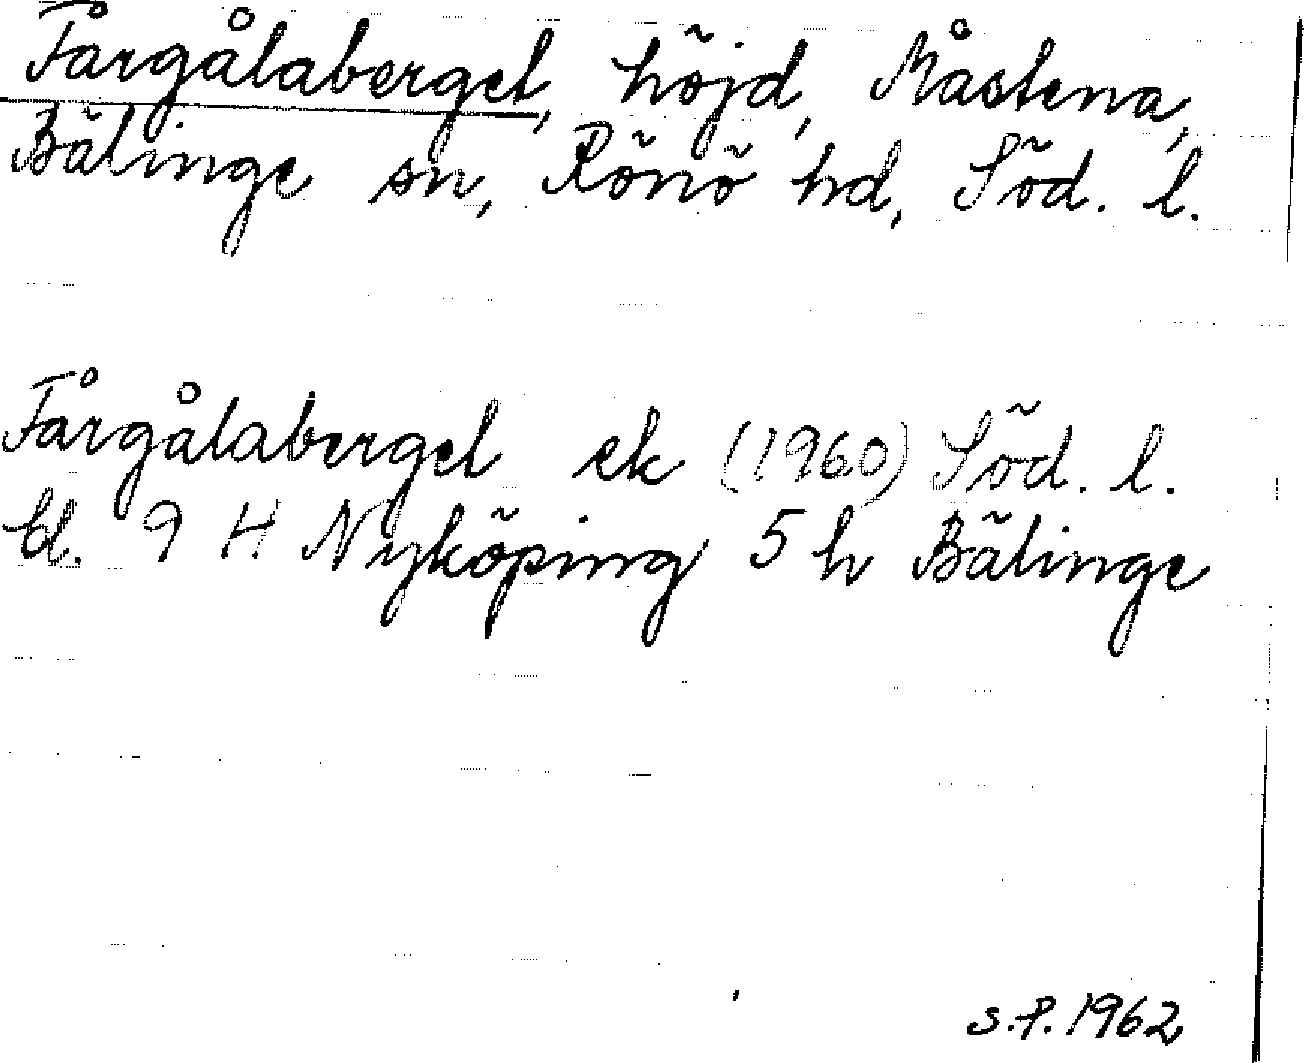 Fårgålaberget, höjd, Måstena,
Bälinge sn, Rönö hd, Söd. l.
Fårgålaberget ek (1960) Söd. l.
bl. 9 H Nyköping 5 h Bälinge
S.P. 1962